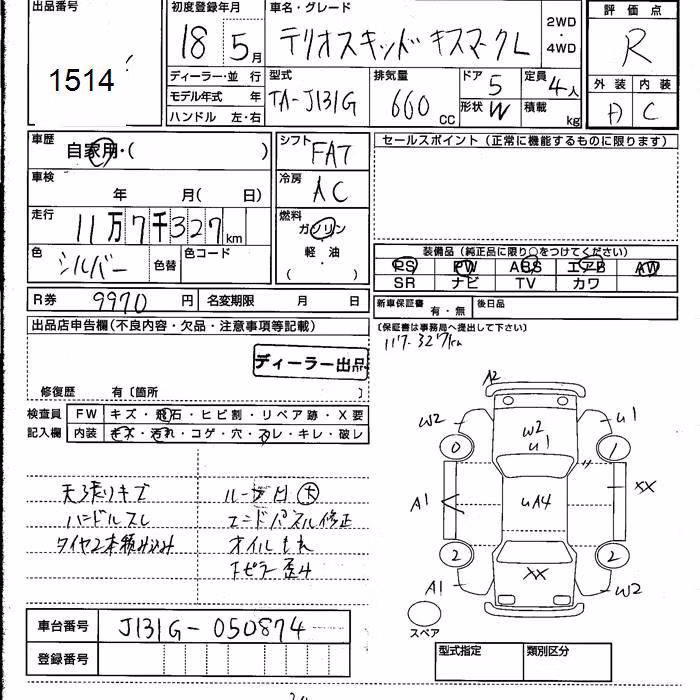 出品番号
1514
初度登録年月
18 5月
車名・グレード
テリオスキッド キスマークL
2WD
・
4WD
評価点
R
ディーラー・並 行
モデル年式 年
ハンドル 左・右
型式
TA-J131G
排気量
660 cc
ドア
5
定員
4人
形状 W
積載 kg
外装 内装
A C
車歴
自家用・( )
車検
年 月( 日)
走行
11万7千327km
色
シルバー
色替
色コード
シフト
FAT
冷房
AC
燃料
ガソリン
軽 油
( )
セールスポイント(正常に機能するものに限ります)
装備品(純正品に限り○をつけてください)
PS PW ABS エアB AW
SR ナビ TV カワ
R券 9970 円
名変期限 月 日
新車保証書 有・無
後日品
〔保証書は事務局へ提出して下さい〕
117.327km
出品店申告欄(不良内容・欠品・注意事項等記載)
ディーラー出品
修復歴 有〔箇所 〕
検査員
記入欄
FW キズ・飛石・ヒビ割・リペア跡・X要
内装 キズ・汚れ・コゲ・穴・スレ・キレ・破レ
天張りキズ
ハンドルスレ
タイヤ2本積み込み
エンドパネル修正
オイルもれ
A2
W2
U1
W2
U1
0
1
A1
UA4
XX
2
2
XX
A1
W2
スペア
車台番号 J131G-050874
登録番号
型式指定
類別区分